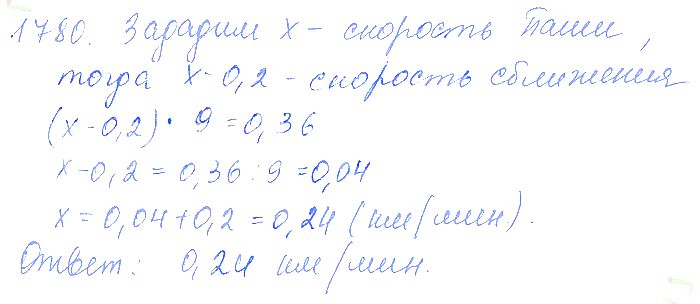 1780. Зададим x - скорость Паши,
тогда x-0,2 - скорость сближения
(x-0,2)· 9 = 0,36
x-0,2 = 0,36 : 9 = 0,04
x = 0,04+0,2 = 0,24 (км/мин).
Ответ: 0,24 км/мин.